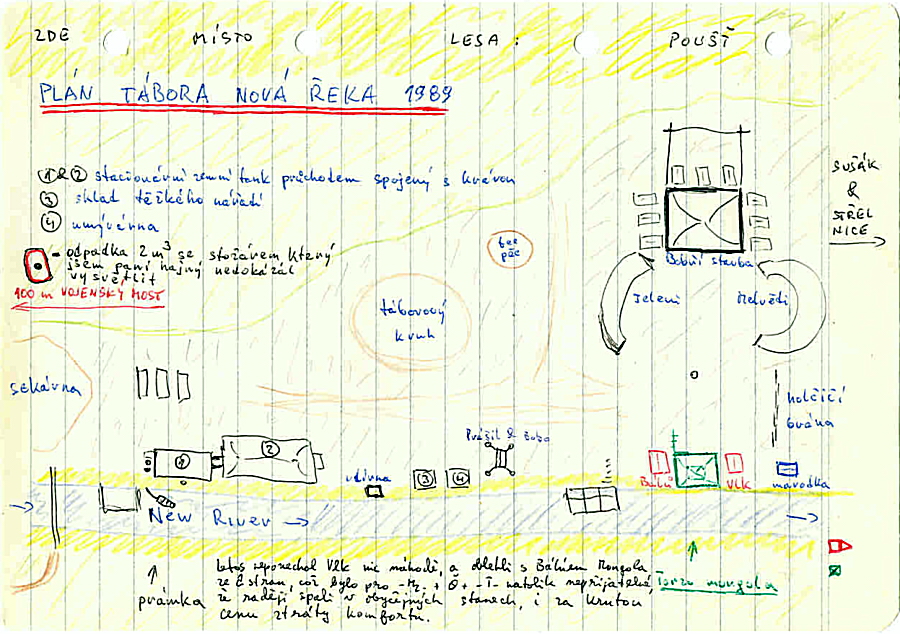 ZDE MÍSTO LESA : POUŠŤ
PLÁN TÁBORA NOVÁ ŘEKA 1989
1 & 2 stacionární zemní tank průchodem spojený s
3 sklad těžkého nářadí
4 umývárna
- odpadka 2 m³ se stožárem, který
jsem paní hajný nedokázal
vysvětlit
100 m VOJENSKÝ MOST
SUŠÁK
&
STŘEL
NICE
bee
pče
Bobří stavba
Jeleni
Medvědi
táborový
kruh
sekárna
holčičí
brána
Prášil &
1
2
udírna
3
4
Bobů
Vlk
návodka
New River
letos neponechal Vlk nic náhodě, a oblehli s Bábiem Mongola
ze 2 stran, což bylo pro -Mz. + Ö + - I - natolik nepřijatelné,
že raději spali v obyčejných stanech, i za krutou
cenu ztráty komfortu.
Torzo mongola
prámka